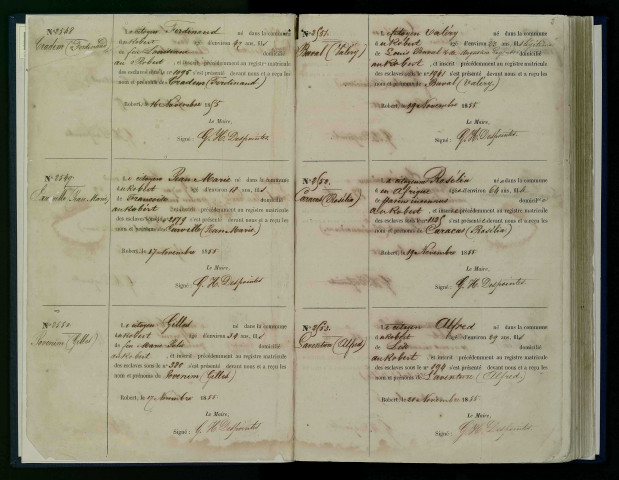 N° 2548
Cradem (Ferdinand)
Le citoyen Ferdinand né dans la commune
du Robert âgé d'environ 47 ans, fils
de feu domicilié
au Robert, et inscrit précédemment au registre matricule
des esclaves sous le n° 1095 s'est présenté devant nous et a reçu les
nom et prénoms de Cradem (Ferdinand)
Robert, le 16 Novembre 1855
Le Maire,
Signé : G. H. Despointes
N° 2549
(Jean Marie)
Le citoyen Jean Marie né dans la commune
du Robert âgé d'environ 18 ans, fils
de Françoise domicilié
au Robert inscrit précédemment au registre matricule
des esclaves sous le n° 2179 s'est présenté devant nous et a reçu les
nom et prénoms de (Jean Marie)
Robert, le 17 Novembre 1855
Le Maire,
Signé : G. H. Despointes
N° 2550
(Gilles)
Le citoyen Gilles né dans la commune
du Robert âgé d'environ 30 ans, fils
de feu Marie domicilié
au Robert, et inscrit précédemment au registre matricule
des esclaves sous le n° 380 s'est présenté devant nous et a reçu les
nom et prénoms de (Gilles)
Robert, le 17 Novembre 1855
Le Maire,
Signé : G. H. Despointes
2
N° 2551.
Buval (Valéry)
Le citoyen Valéry né dans la commune
du Robert âgé d'environ 22 ans, fils
de Louis Buval domicilié
au Robert, et inscrit précédemment au registre matricule
des esclaves sous le n° 1961 s'est présenté devant nous et a reçu les
nom et prénoms de Buval (Valéry)
Robert, le 19 Novembre 1855
Le Maire,
Signé : G. H. Despointes
N° 2552.
Caracas (Rosélia)
La citoyenne Rosélia née dans la commune
d en Afrique âgée d'environ 64 ans, fille
de parens inconnus domiciliée
au Robert, et inscrite précédemment au registre matricule
des esclaves sous le n° 1185 s'est présentée devant nous et a reçu les
nom et prénoms de Caracas (Rosélia)
Robert, le 19 Novembre 1855
Le Maire,
Signé : G. H. Despointes
N° 2553.
Laventure (Alfred)
Le citoyen Alfred né dans la commune
du Robert âgé d'environ 29 ans, fils
de domicilié
au Robert, et inscrit précédemment au registre matricule
des esclaves sous le n° 190 s'est présenté devant nous et a reçu les
nom et prénoms de Laventure (Alfred)
Robert, le 20 Novembre 1855
Le Maire,
Signé : G. H. Despointes